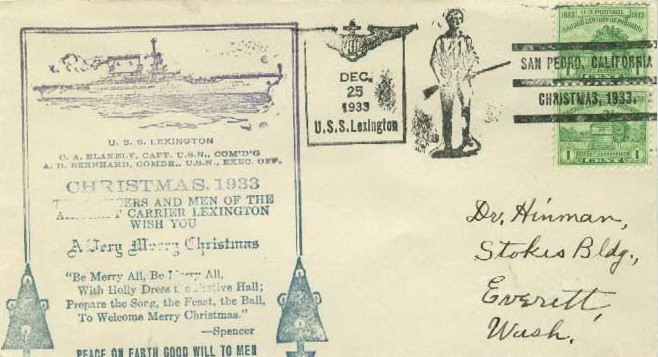 U. S. S. LEXINGTON
C. A. BLAKELY, CAPT. U.S.N., COM'D'G
A. D. BERNHARD, COMDR., U.S.N., EXEC. OFF.
CHRISTMAS, 1933
OFFICERS AND MEN OF THE
AIRCRAFT CARRIER LEXINGTON
WISH YOU
A Very Merry Christmas
"Be Merry All, Be Merry All,
With Holly Dress the Festive Hall;
Prepare the Song, the Feast, the Ball,
To Welcome Merry Christmas."
—Spencer
PEACE ON EARTH GOOD WILL TO MEN
DEC.
25
1933
U.S.S. Lexington
U.S. POSTAGE
1833 1933
CHICAGO CENTURY OF PROGRESS
SAN PEDRO, CALIFORNIA
CHRISTMAS, 1933.
1 CENT 1
Dr. Hinman,
Stokes Bldg.,
Everett,
Wash.